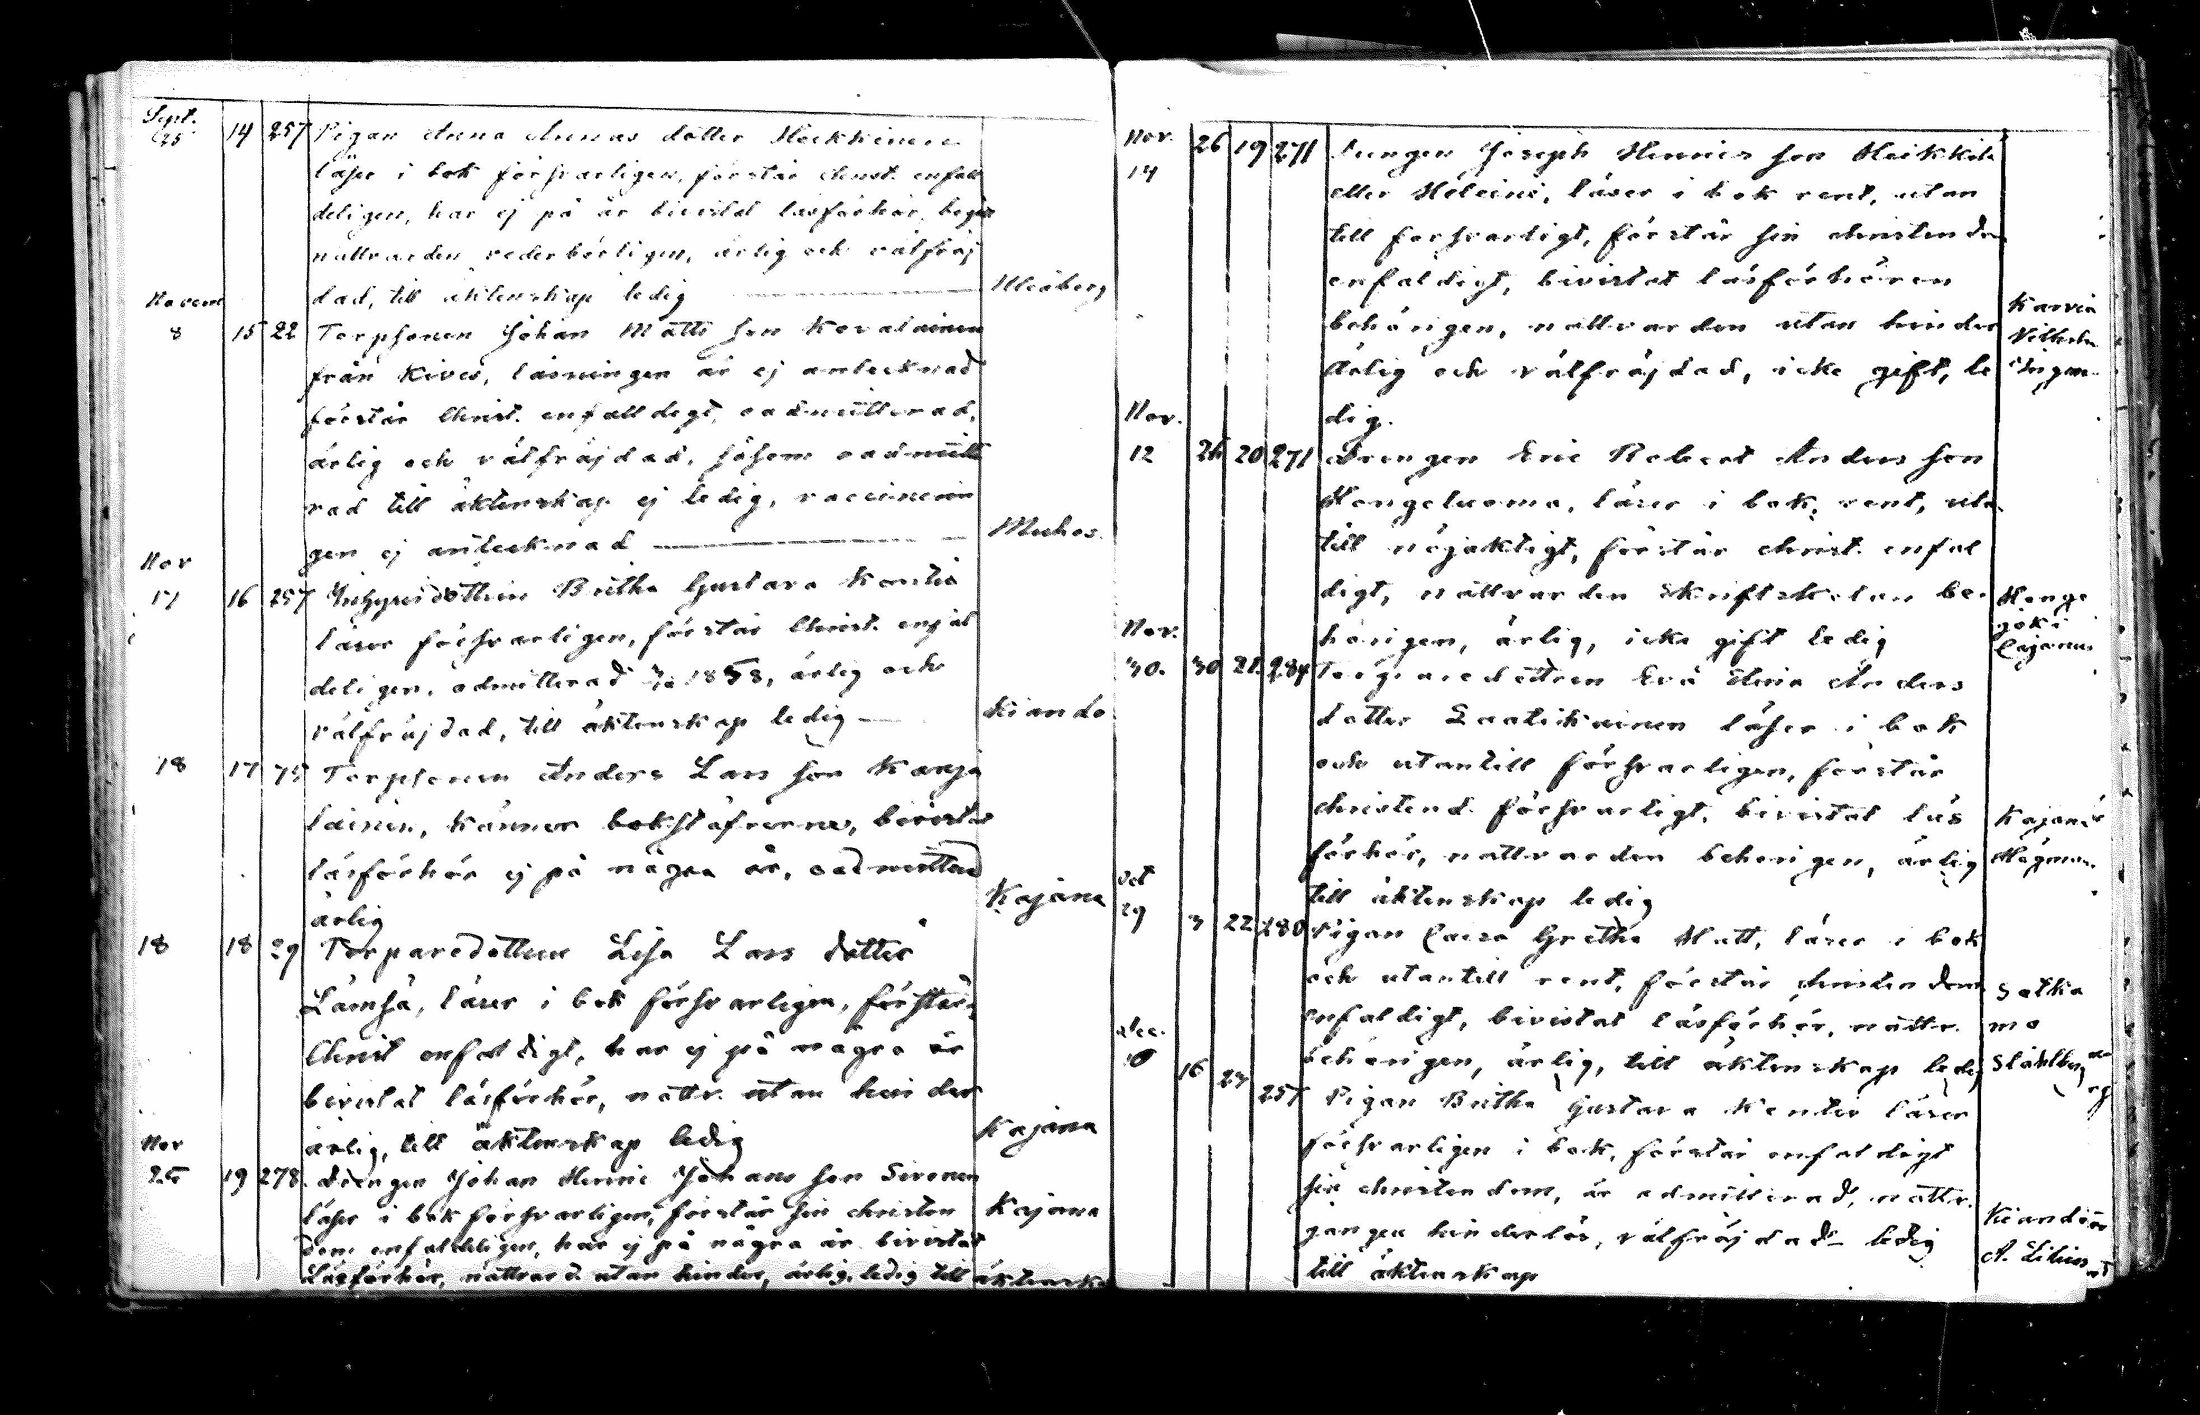 Sept. 25 14 257 Pigan Anna Annas dotter Heikkinen
läser i bok försvarligen, förstår christ. enfal
deligen, har ej på år bivistat läsförhör, begår
nattvarden vederbörligen, ärlig och välfräj
dad, till äktenskap ledig — Uleåborg
Novem 8 15 22 Torpsonen Johan Matts son Kovalainen
från Kives, läsningen är ej antecknad
förstår Christ. enfalldigt, oadmitterad,
ärlig och välfräjdad, såsom oadmitte
rad till äktenskap ej ledig, vaccinerin
gen ej antecknad — Muhos
Nov 17 16 257 Britha Gustava
läser försvarligen, förstår Christ. enfal
deligen, admitterad 1858, ärlig och
välfräjdad, till äktenskap ledig — Kianda
18 17 75 Torpsonen Anders Lars son Karja
lainen, känner bokstäfverne, bivistat
läsförhör ej på några år, oadmitterad
ärlig Kajana
18 18 29 Torparedottren Lisa Lars dotter
Lämsä, läser i bok försvarligen, förstår
Christ enfaldigt, har ej på några år
bivistat läsförhör, nattv. utan hinder
ärlig, till äktenskap ledig Kajana
Nov 25 19 278 Drängen Johan Henric Johans son Sironen
läser i bok försvarligen, förstår sin christen Kajana
dom enfaldeligen, har ej på några år bivistat
Läsförhör, nattvard. utan hinder, ärlig, ledig till äktenska
Nov. 14 26 19 271 Drengen Joseph Henrics son Heikkilä
eller, läser i bok rent, utan
till försvarligt, förstår sin christendom
enfaldigt, bivistat läsförhören
behörigen, nattvarden utan hinder Karvia
Ärlig och välfräjdad, icke gift, le
dig.
Nov. 12 26 20 271 Drengen Eric Robert Anders son
Hongeluoma, läser i bok rent, utan
till nöjaktigt, förstår christ. enfal
digt, nattvarden skriftskolan be- Honga
joki
hörigen, ärlig, icke gift ledig Cajanus
Nov. 30. 30 21. 284 Torparedottren Eva Anders
dotter Saatikainen läser i bok
och utantill försvarligen, förstår
christend. försvarligt, bivistat läs Kajana
förhör, nattvarden behörigen, ärlig Högman
till äktenskap ledig
Oct 29 3 22 280 Pigan Caisa Gretha Matt, läser i bok
och utantill rent, förstår christendom Sotka
enfaldigt, bivistat läsförhör, nattv. mo
behörigen, ärlig, till äktenskap ledig Ståhlberg
Dec. 10 16 23 257 Pigan Britha Gustava läser
försvarligen i bok, förstår enfaldigt
sin christendom, är admitterad, nattv.
gången hinderlös, välfräjdad ledig
till äktenskap